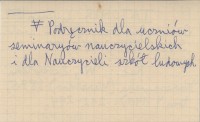 # Podręcznik dla uczniów
seminaryów nauczycielskich
i dla Nauczycieli szkół ludowych